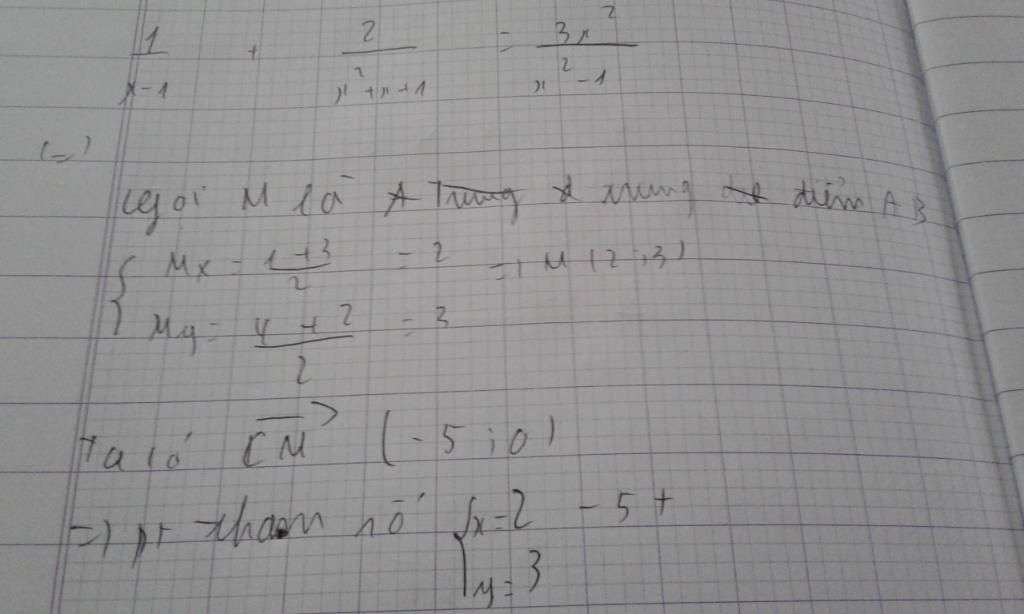 1/(x-1) + 2/(x²+x+1) = 3x²/(x²-1)
(=)
Gọi M là trung điểm AB
{ Mx = (1+3)/2 = 2 =) M (2;3)
My = (4+2)/2 = 3
Ta có CM→ (-5;0)
=) pt tham số { x=2 -5t
y=3